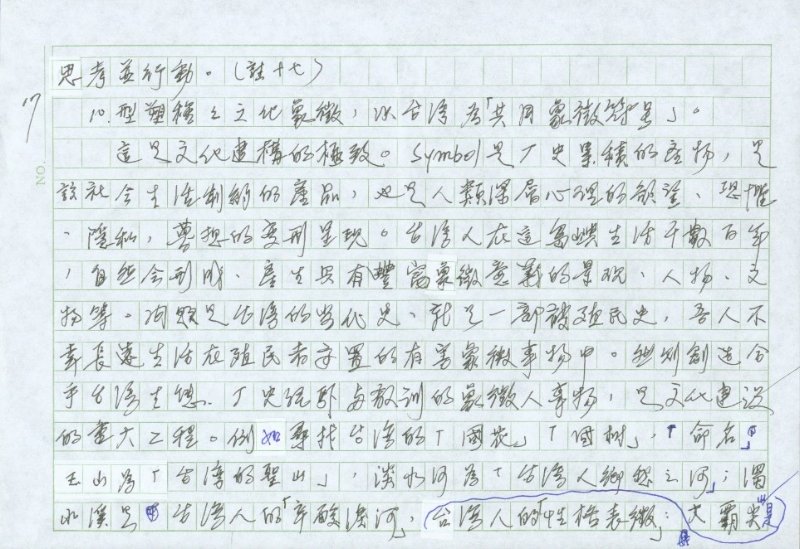 思考並行動。（註十七）
17
10.型塑種種文化象徵，以台湾為「共同象徵符号」。
這是文化建構的極致。Symbol是厂史累積的產物，是
該社会生活制約的產品，也是人類深層心理的慾望、恐惧
、隱私，夢想的变形呈現。台湾人在這島嶼生活千數百年
，自然会形成、產生具有豐富象徵意義的景观、人物、文
物等。问题是台湾的当代史，就是一部被殖民史，吾人不
幸長遠生活在殖民者布置的有害象徵事物中。規划創造合
乎台湾生態、厂史經驗与教訓的象徵人事物，是文化建设
的重大工程。例如尋找台湾的「国花」「国树」，「命名」
玉山為「台湾的聖山」，淡水河為「台湾人鄉愁之河」；濁
水溪是台湾人的「辛酸淚河」，台湾人的「性格表徵」；大霸尖山是
NO.